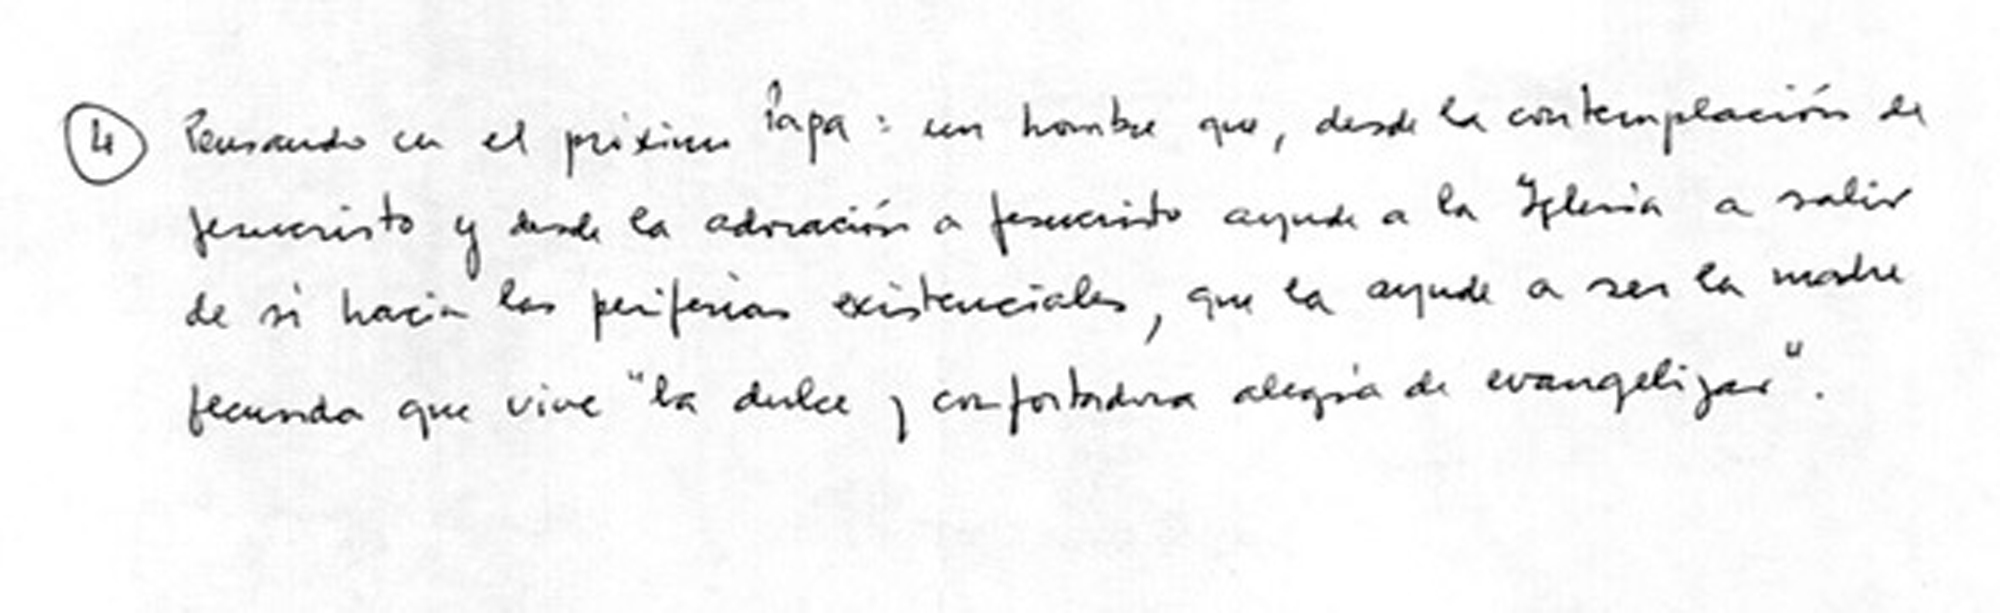 ④ Pensando en el próximo Papa: un hombre que, desde la contemplación de
Jesucristo y desde la adoración a Jesucristo ayude a la Iglesia a salir
de sí hacia las periferias existenciales, que la ayude a ser la madre
fecunda que vive "la dulce y confortadora alegría de evangelizar".